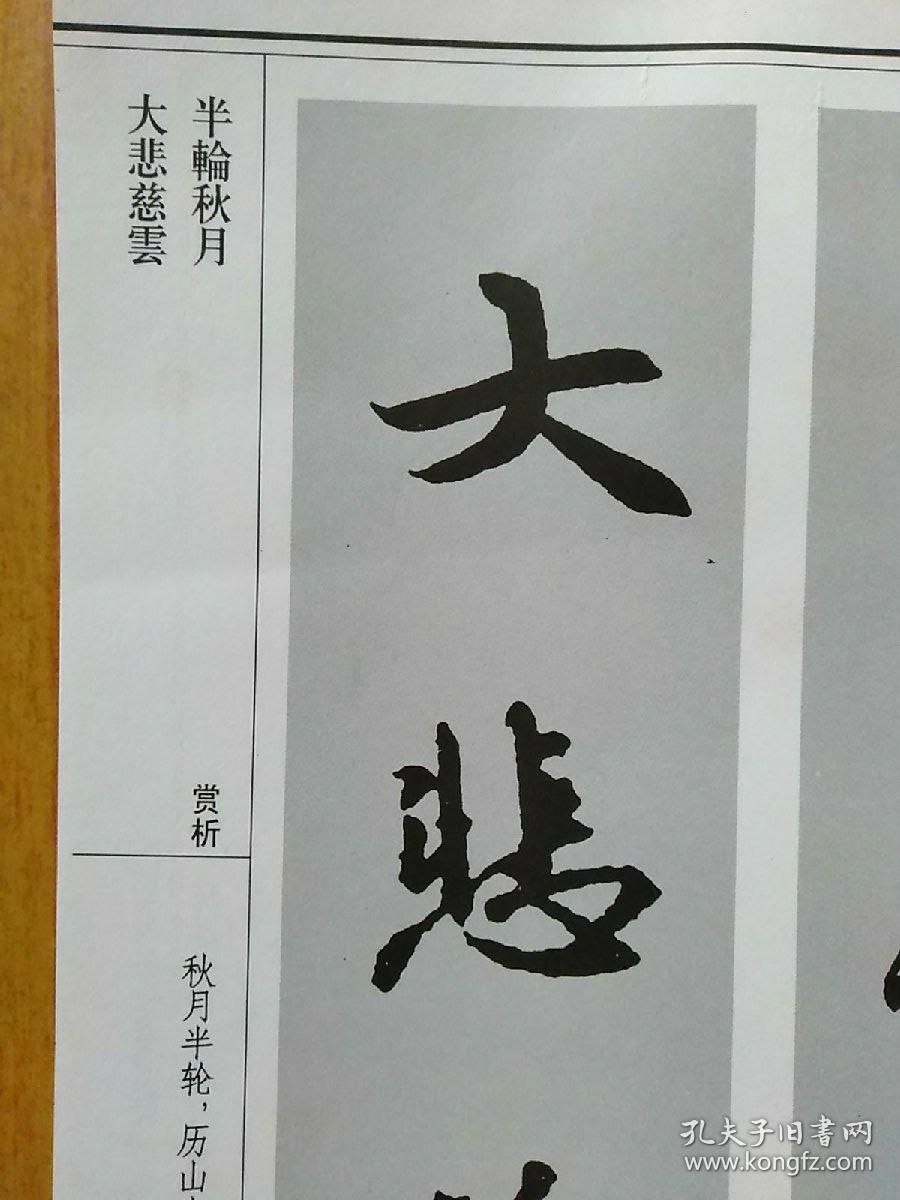 半輪秋月
大悲慈雲
赏析
秋月半轮，历山
大悲
孔夫子旧书网
www.kongfz.com